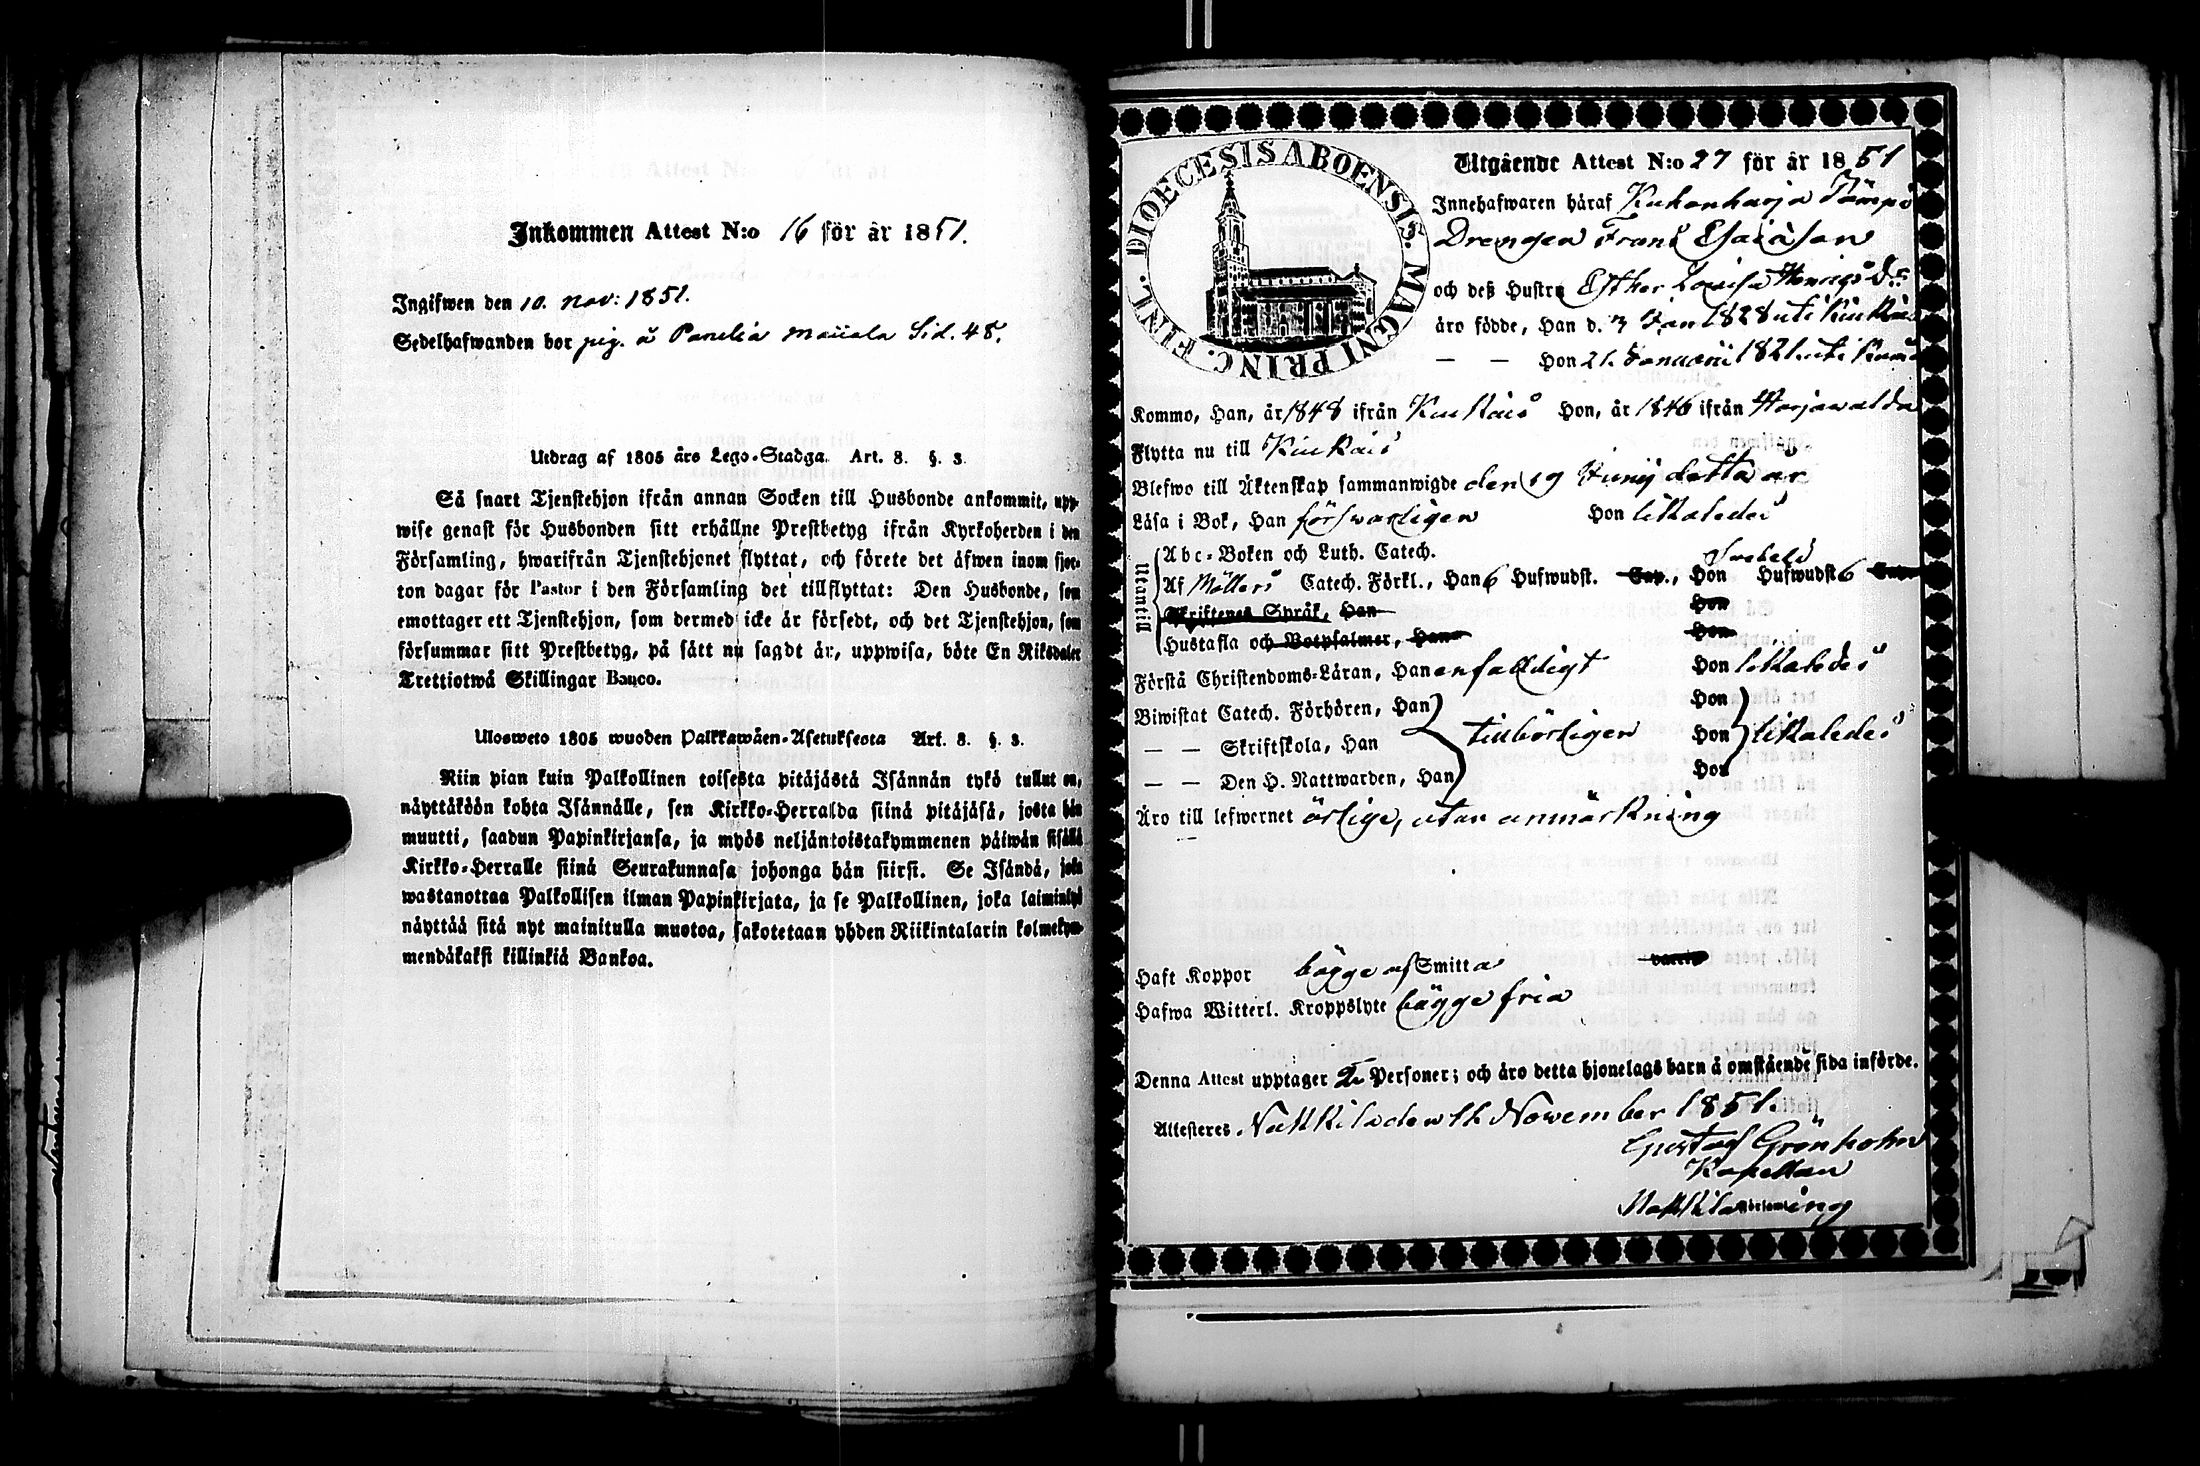 Inkommen Attest N:o 16 för år 1851.
Ingifwen den 10. nov: 1851.
Sedelhafwanden bor pig. å Panelia Mauala Sid. 48.
Utdrag af 1805 års Lego-Stadga. Art. 8. §. 3.
Så snart Tjenstehjon ifrån annan Socken till Husbonde ankommit, upp-
wise genast för Husbonden sitt erhållne Prestbetyg ifrån Kyrkoherden i den
Församling, hwarifrån Tjenstehjonet flyttat, och förete det äfwen inom fjor-
ton dagar för Pastor i den Församling det tillflyttat: Den Husbonde, som
emottager ett Tjenstehjon, som dermed icke är försedt, och det Tjenstehjon, som
försummar sitt Prestbetyg, på sätt nu sagdt är, uppwisa, böte En Riksdaler
Trettiotwå Skillingar Banco.
Ulosweto 1805 wuoden Palkkawäen-Asetuksesta Art. 8. §. 3.
Niin pian kuin Palkollinen toisesta pitäjästä Isännän tykö tullut on,
näyttäköön kohta Isännälle, sen Kirkko-Herralda siinä pitäjäsä, josta hän
muutti, saadun Papinkirjansa, ja myös neljäntoistakymmenen päiwän sisällä
Kirkko-Herralle siinä Seurakunnasa johonga hän siirsi. Se Isändä, joka
wastanottaa Palkollisen ilman Papinkirjata, ja se Palkollinen, joka laiminlyö
näyttää sitä nyt mainitulla muotoa, sakotetaan yhden Riikintalarin kolmekym-
mendäkaksi killinkiä Bankoa.
DIOECESIS ABOENSIS. MAGNI PRINC. FINL.
Utgående Attest N:o 27 för år 1851
Innehafwaren häraf Kukonharja Tömpö
Drengen Frans Esaiason
och deß Hustru Esther Lovisa Henrigsd:r
äro födde, Han d. 3 Jan 1828 uti Kiukais
— — Hon 21. Januarii 1821. uti
Kommo, Han, år 1848 ifrån Kiukais Hon, år 1846 ifrån Harjawalda
Flytta nu till Kiukais
Blefwo till Äktenskap sammanwigde den 19 Junij detta år
Läsa i Bok, Han försvarligen Hon likaledes
Utantill
Abc-Boken och Luth. Catech.
Svebelii
Af Möllers Catech. Förkl., Han 6 Hufwudst. Cap., Hon Hufwudst 6 Cap.
Skriftenes Språk, Han Hon
Hustafla och Botpsalmer, Han Hon
Förstå Christendoms-Läran, Han enfaldigt Hon likaledes
Biwistat Catech. Förhören, Han Hon
— — Skriftskola, Han tillbörligen Hon likaledes
— — Den H. Nattwarden, Han Hon
Äro till lefwernet ärlige, utan anmärkning
Haft Koppor bägge af Smitta
Hafwa Witterl. Kroppslyte bägge fria
Denna Attest upptager 2 Personer; och äro detta hjonelags barn å omstående sida införde.
Attesteres Nakkila den November 1851.
Gustaf Grönholm
Kapellan
Nakkila Församling